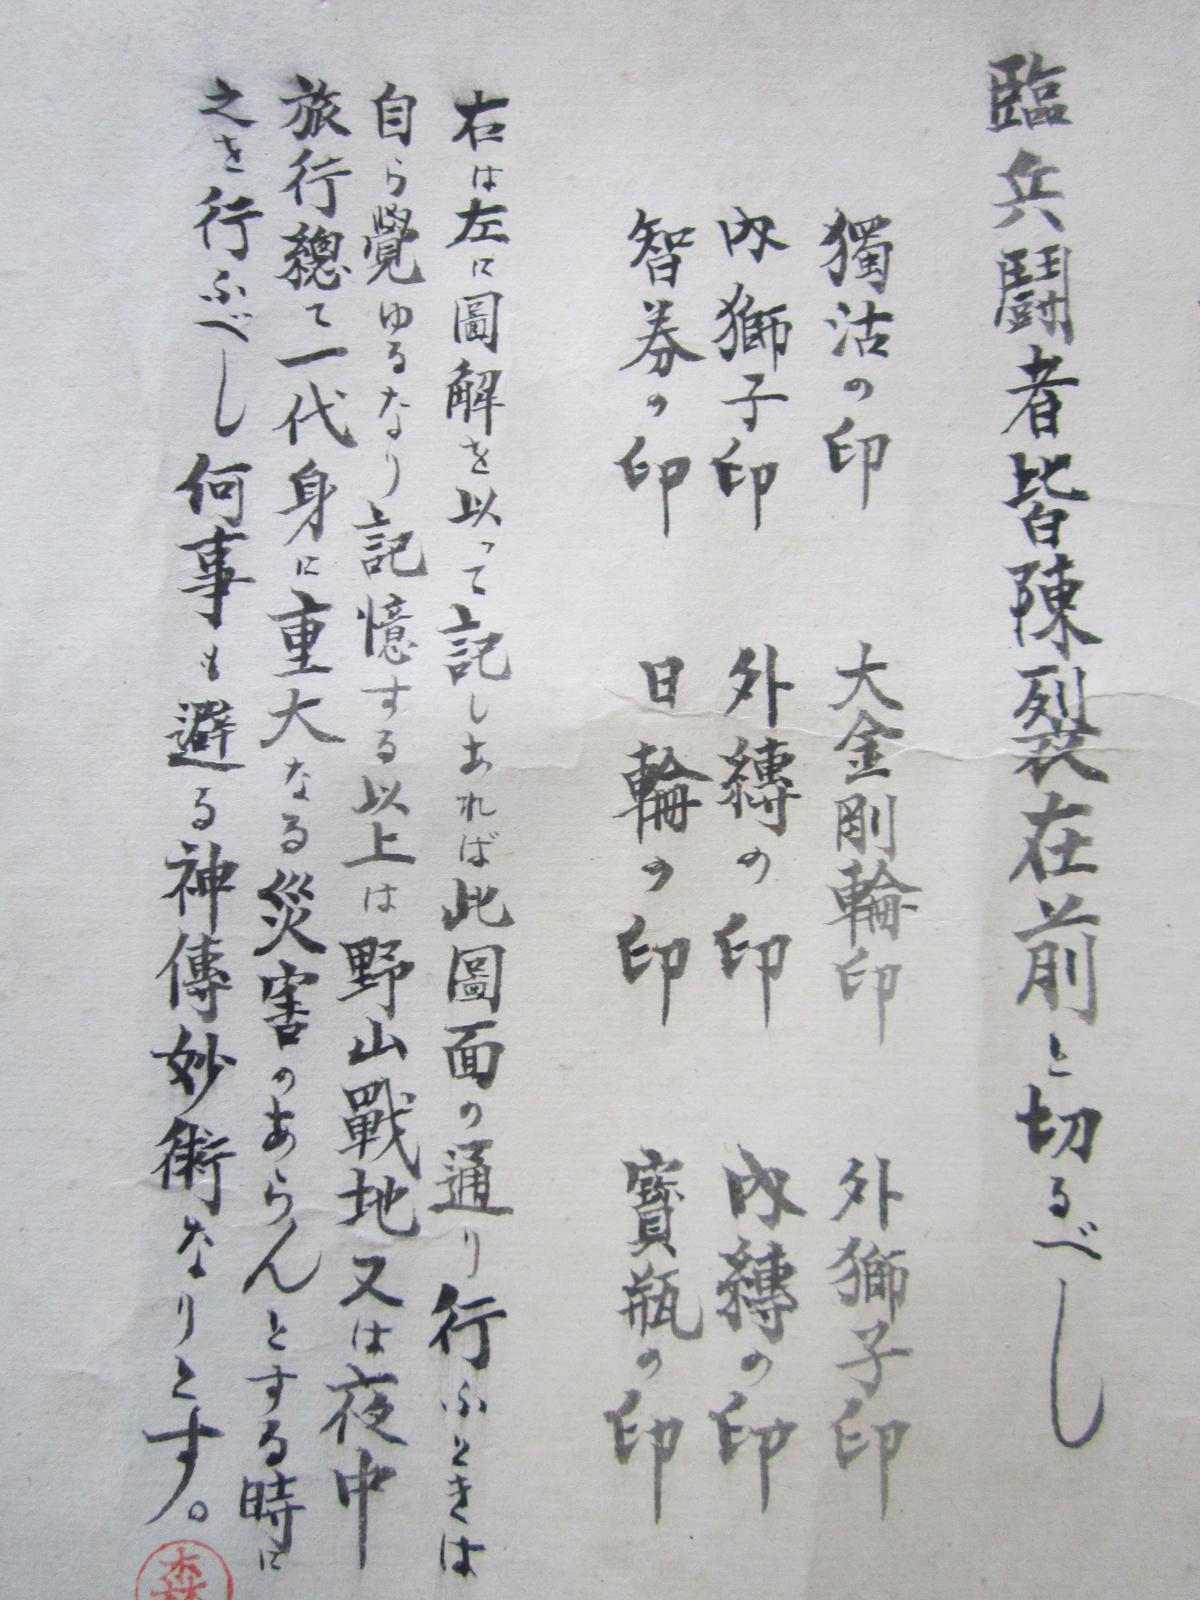 臨兵闘者皆陳裂在前と切るべし
獨沽の印　大金剛輪印　外獅子印
内獅子印　外縛の印　内縛の印
智券の印　日輪の印　寶瓶の印
右は左に圖解を以って記しあれば此圖面の通り行ふときは
自ら覺ゆるなり記憶する以上は野山戰地又は夜中
旅行總て一代身に重大なる災害のあらんとする時に
之を行ふべし何事も避る神傳妙術なりとす。
森